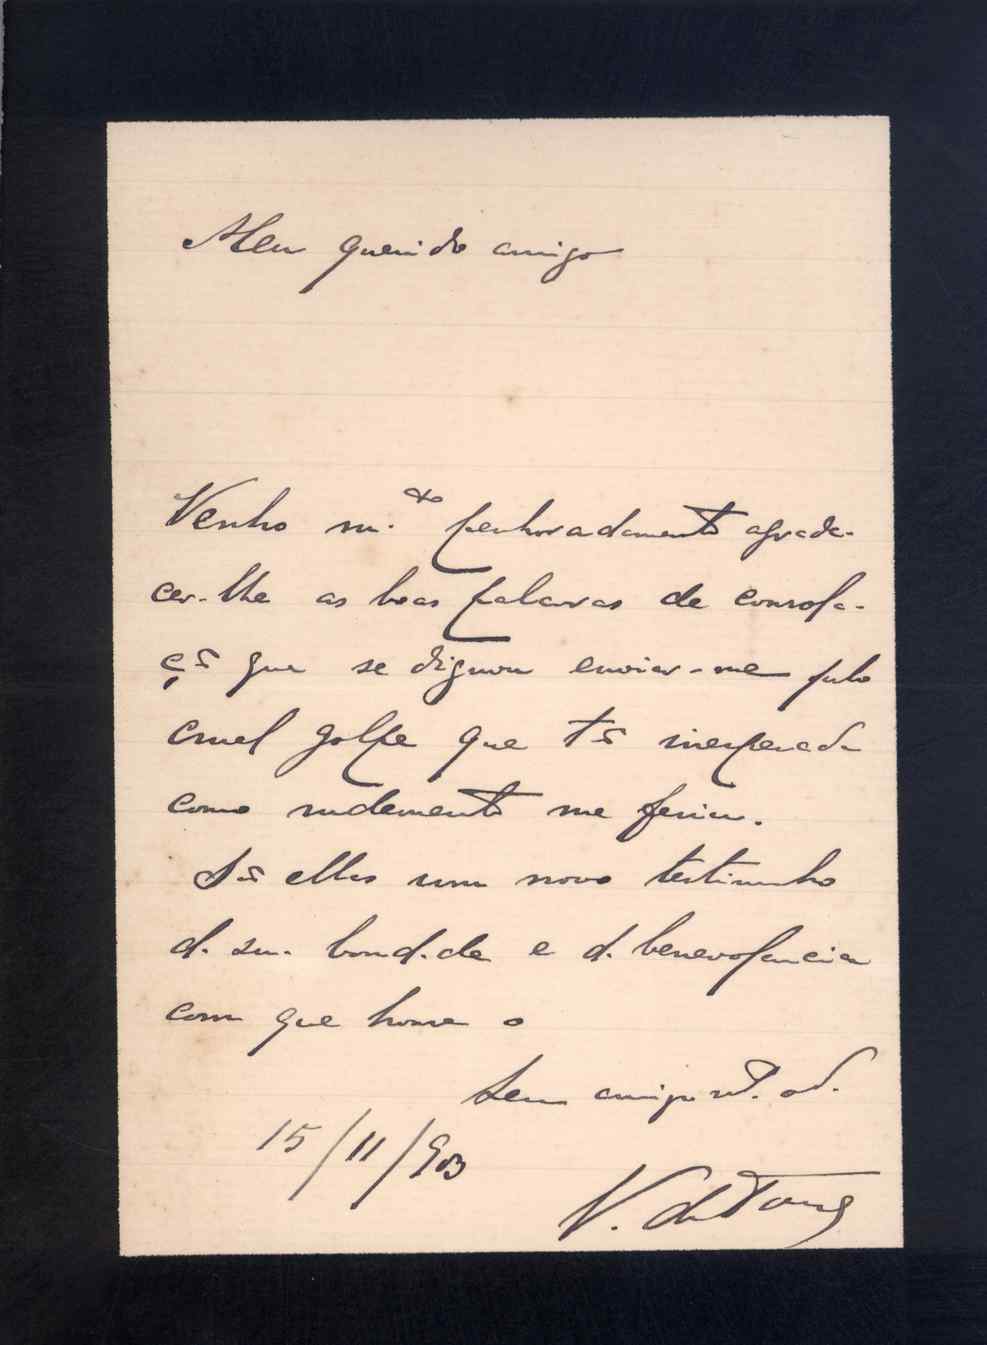 Meu querido amigo
Venho m.to penhoradamente agrade-
cer-lhe as boas palavras de consola-
çõ que se dignou enviar-me pelo
cruel golpe que tõ inesperada
como rudemente me feriu.
Sõ ellas um novo testimunho
de sua bondade e da benevolencia
com que honra o
Seu amigo
15/11/903
V. da Torre